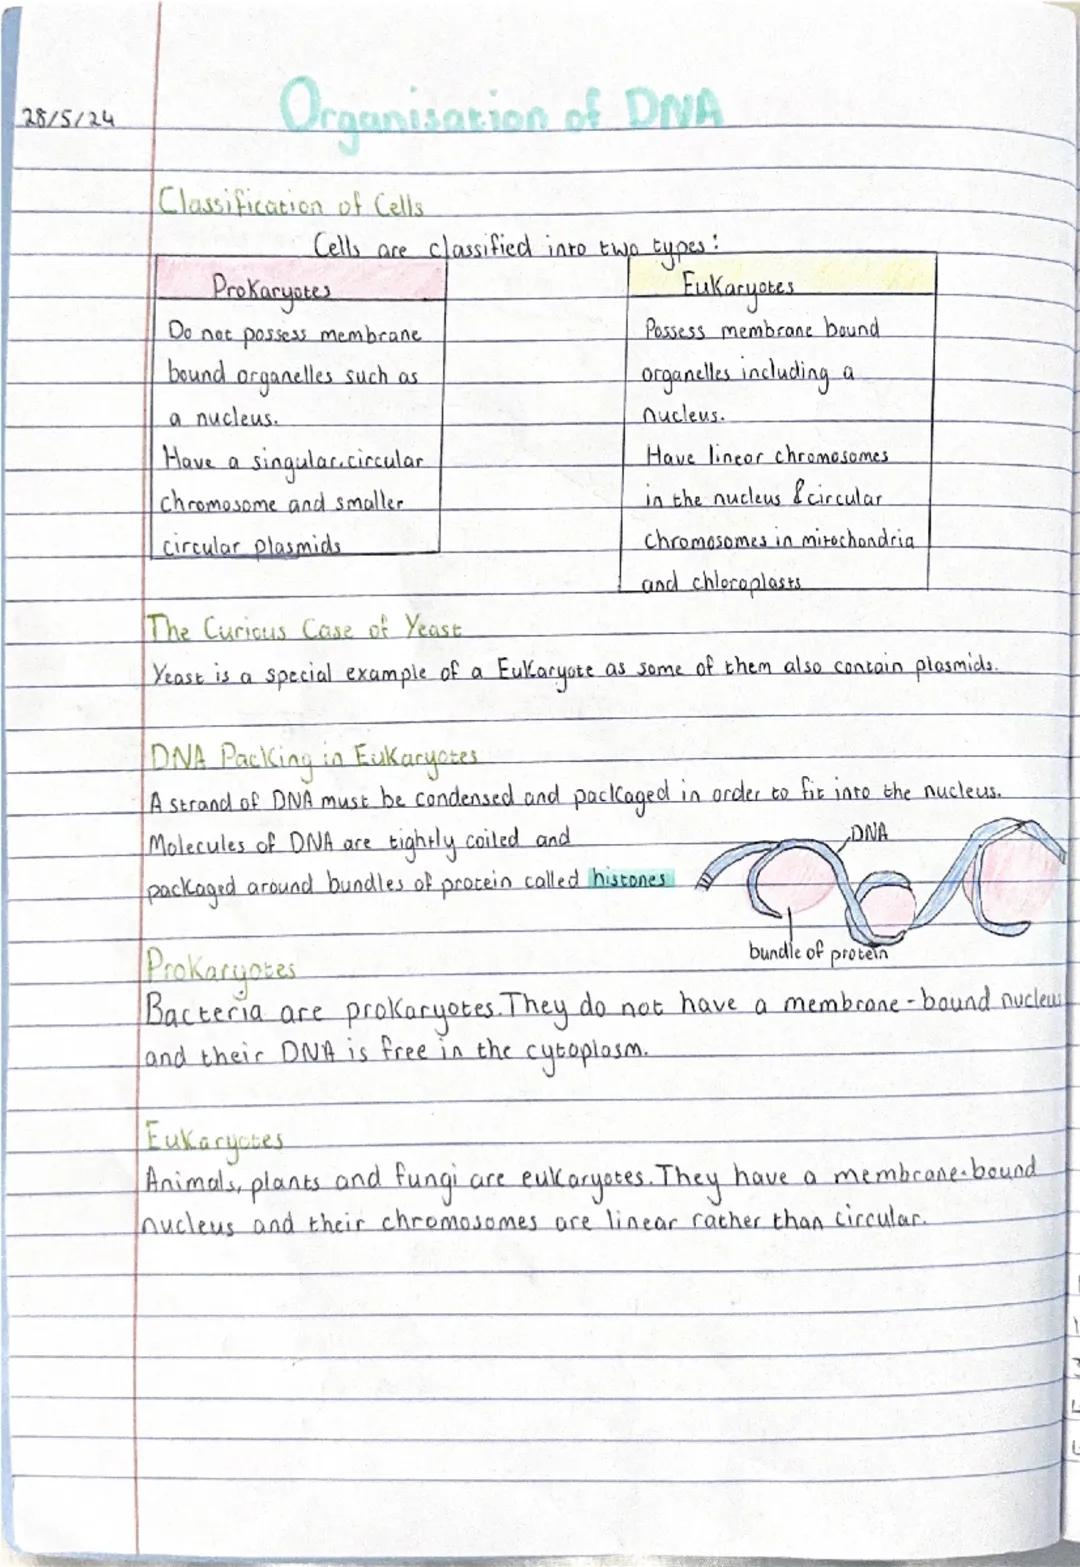 28/5/24
Organisation of DNA
Classification of Cells
Cells are classified into two types:
Prokaryotes
Do not possess membrane
bound organelles such as
a nucleus.
Have a singular, circular
chromosome and smaller
circular plasmids
Eukaryotes
Possess membrane bound
organelles including a
nucleus.
Have linear chromosomes
in the nucleus & circular
chromosomes in mitochondria
and chloroplasts
The Curious Case of Yeast
Yeast is a special example of a Eukaryote as some of them also contain plasmids.
DNA Packing in Eukaryotes
A strand of DNA must be condensed and packaged in order to fit into the nucleus.
Molecules of DNA are tightly coiled and
packaged around bundles of protein called histones
DNA
bundle of protein
Prokaryotes
Bacteria are prokaryotes. They do not have a membrane-bound nucleus
and their DNA is free in the cytoplasm.
Eukaryotes
Animals, plants and fungi are eukaryotes. They have a membrane-bound
nucleus and their chromosomes are linear rather than circular.